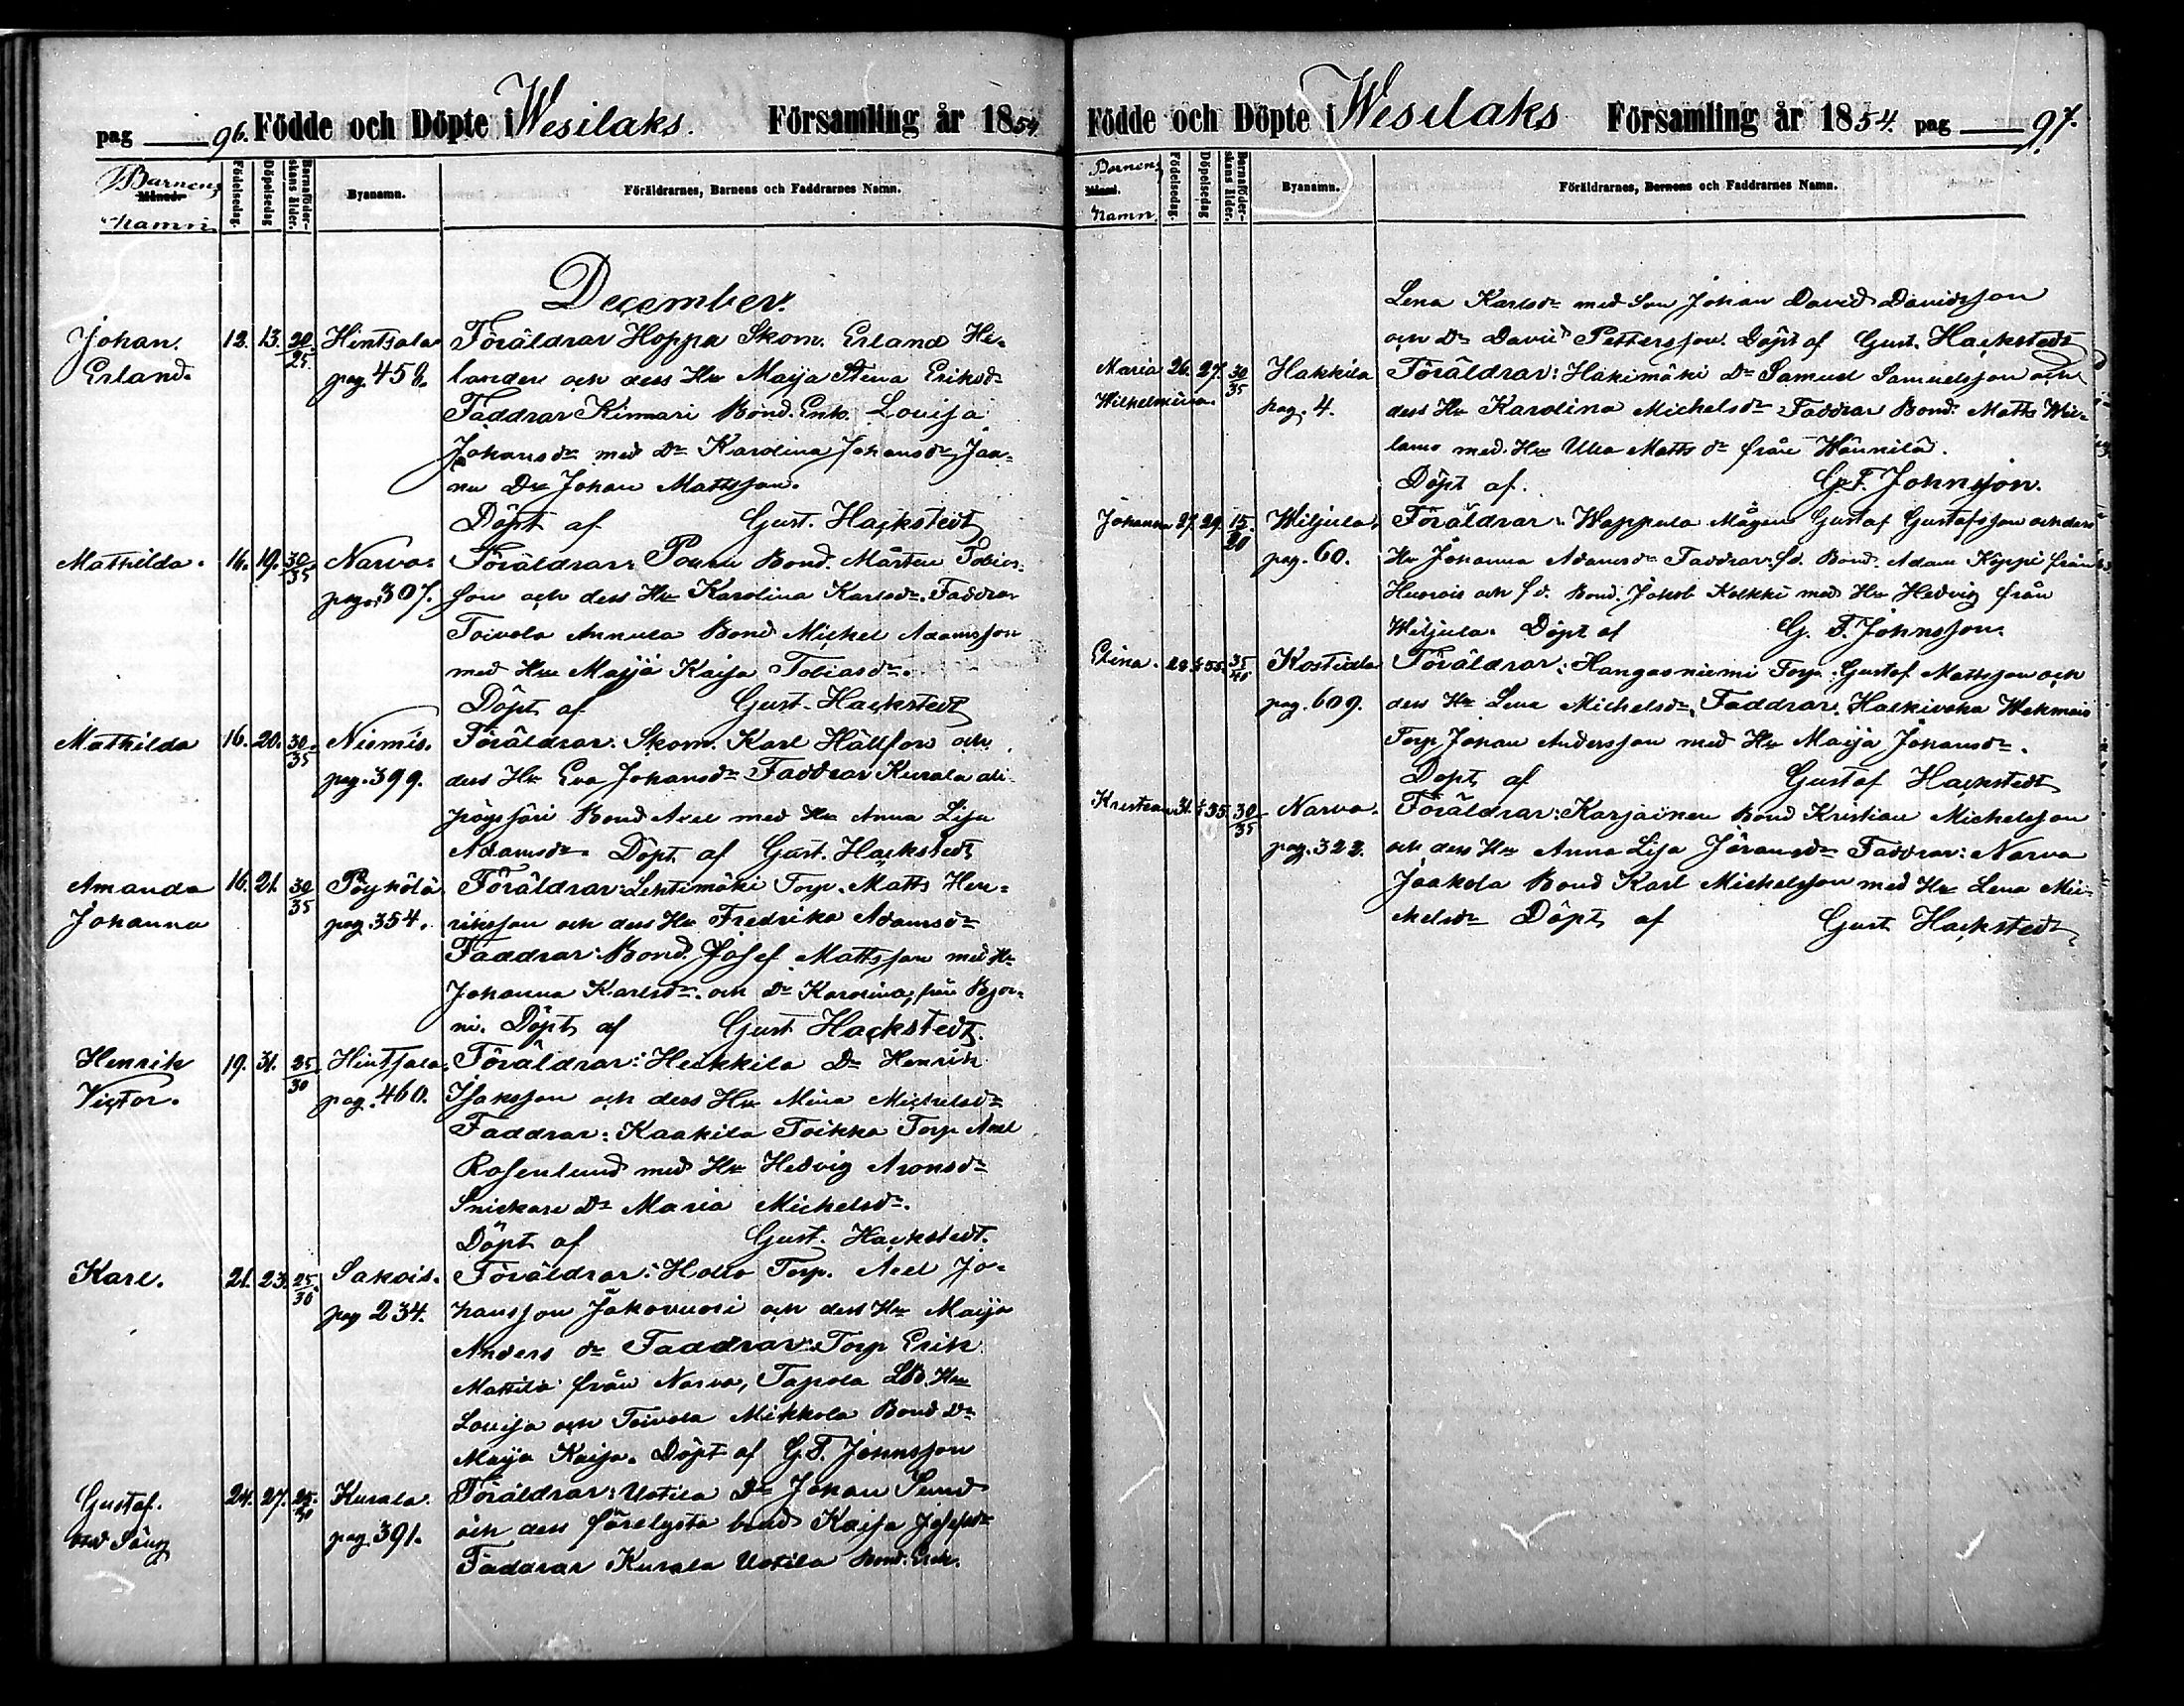 pag 96. Födde och Döpte i Wesilaks. Församling år 1854
Barnens Namn
Månad.
Födelsedag.
Döpelsedag
Barnaföderskans ålder.
Byanamn.
Föräldrarnes, Barnens och Faddrarnes Namn.
December.
Johan 12. 13. 20/25. Hintsala Föräldrar Hoppa Skom. Erland He-
Erland. pag. 458. lander och dess Hu Maija Stena Eriksdr
Faddrar Kinnari Bond. Enk. Lovisa
Johansdr med Dr Karolina Johansdr, Jaa-
nu Dr Johan Mattsson.
Döpt af Gust. Hackstedt
Mathilda. 16. 19. 30/35 Narva. Föräldrar: Bond. Mårten Tobias-
pag. 307. son och dess Hu Karolina Karlsdr. Faddrar
Toivola Annula Bond Michel Adamsson
med Hu Maija Kaisa Tobiasdr.
Döpt af Gust. Hackstedt
Mathilda 16. 20. 30/35 Niemis. Föräldrar: Skom. Karl Hällfors och
pag. 399. dess Hu Eva Johansdr Faddrar Kurala ali
Bond Axel med Hu Anna Lisa
Adamsdr. Döpt af Gust. Hackstedt
Amanda 16. 21. 30/35 Pöyhölä Föräldrar: Lehtimäki Torp. Matts Hen-
Johanna pag. 354. riksson och dess Hu Fredrika Adamsdr
Faddrar: Bond. Josef Mattsson med Hu
Johanna Karlsdr. och Dr Karolina, från
Döpt af Gust Hackstedt.
Henrik 19. 31. 25/30 Hintsala. Föräldrar: Heikkila Dr Henrik
Victor. pag. 460. Isaksson och dess Hu Mina Michelsdr
Faddrar: Kaakila Toikka Torp Axel
Rosenlund med Hu Hedvig Aronsdr
Snickare Dr Maria Michelsdr.
Döpt af Gust. Hackstedt.
Karl. 21. 23. 25/30 Sakois. Föräldrar: Hollo Torp. Axel Jo-
pag 234. hansson Jäkovuori och dess Hu Maija
Anders dr Faddrar: Torp Erik
Mattila från Narva, Tapola Hu
Lovisa och Toivola Mikkola Bond Dr
Maija Kaisa. Döpt af G.F. Johnsson
Gustaf. 24. 27. Kurala. Föräldrar: Uotila Dr Johan Sund
pag. 391. och dess förelysta brud Kaisa Josefsdr
Faddrar Kurala Uotila Bond. Erik.
Födde och Döpte i Wesilaks Församling år 1854. pag 97.
Barnens Namn
Månad.
Födelsedag.
Döpelsedag
Barnaföderskans ålder.
Byanamn.
Föräldrarnes, Barnens och Faddrarnes Namn.
Lena Karlsdr med Son Johan David Davidsson
och Dr David Pettersson. Döpt af Gust. Hackstedt
Maria 26. 27. 30/35 Hakkila Föräldrar: Hakimäki Dr Samuel Samuelsson och
Wilhelmina. pag. 4. dess Hu Karolina Michelsdr Faddrar Bond. Matts Wie-
lamo med Hu Ulla Matts dr från Wännilä.
Döpt af. G.F. Johnsson.
Johanna 27. 29. 15/20 Wiljula. Föräldrar: Wappula Mågen Gustaf Gustafsson och dess
pag. 60. Hu Johanna Adamsdr Faddrar: fd. Bond. Adam från
och fd. Bond. Jakob Kolkki med Hu Hedvig från
Wiljula. Döpt af G. F. Johnsson.
Elina. 28 35/40 Kostiala Föräldrar: Hangasniemi Torp. Gustaf Mattsson och
pag. 609. dess Hu Lena Michelsdr, Faddrar.
Torp Johan Andersson med Hu Maija Johansdr.
Döpt af Gustaf Hackstedt
Kristian 31. 30/35 Narva. Föräldrar: Karjainen Bond Kristian Michelsson
pag. 322. och dess Hu Anna Lisa Göransdr Faddrar: Narva
Jaakola Bond Karl Michelsson med Hu Lena Mi-
chelsdr Döpt af Gust Hackstedt